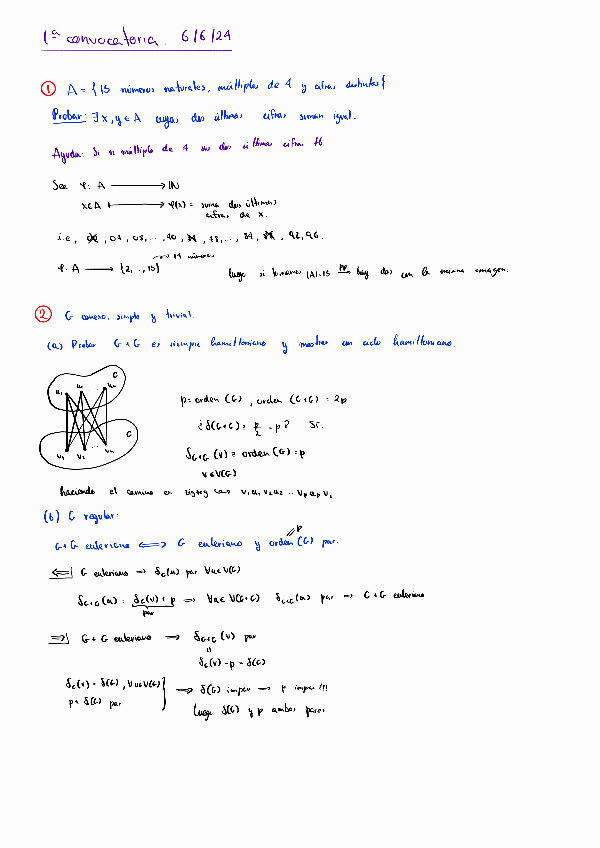 1ª convocatoria. 6/6/24
① A = {15 números naturales, múltiplos de 4 y cifras distintas}
Probar: ∃ x, y ∈ A cuyas dos últimas cifras suman igual.
Ayuda: Si n múltiplo de 4 sus dos últimas cifras
Sea φ: A → ℕ
x∈A ↦ φ(x) = suma dos últimas
cifras de x.
i.e, 00, 04, 08, ..., 40, 44, 48, ..., 84, 88, 92, 96.
14 números
φ: A → {2, .., 15} luego si tomamos |A|=15 ⟹ hay dos con la misma imagen.
② G conexo, simple y trivial.
(a) Probar G+G es siempre hamiltoniano y mostrar un ciclo hamiltoniano.
G
u₁ u₂ ... uₙ
G
v₁ v₂ ... vₙ
p = orden (G), orden (G+G) = 2p
¿ δ(G+G) = p/2 = p? Sí.
δ_G+G (v) ≥ orden (G) = p
v ∈ V(G)
haciendo el camino en zigzag v₁ u₁ v₂ u₂ ... vₚ uₚ v₁
(b) G regular:
G+G euleriano ⟺ G euleriano y orden (G) par.
p
⟸| G euleriano → δ_G(u) par ∀u∈V(G)
δ_G+G (u) = δ_G(v) + p ⟹ ∀u∈V(G+G) δ_G+G(u) par → G+G euleriano
par
⟹| G+G euleriano → δ_G+G (v) par
=
δ_G(v) - p = δ(G)
δ_G(v) = δ(G), ∀v∈V(G)
p + δ(G) par
→ δ(G) impar → p impar !!!
Luego δ(G) y p ambos pares